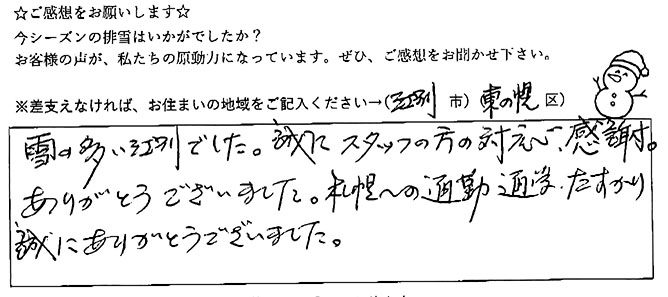 ☆ご感想をお願いします☆
今シーズンの排雪はいかがでしたか？
お客様の声が、私たちの原動力になっています。ぜひ、ご感想をお聞かせ下さい。
※差支えなければ、お住まいの地域をご記入ください→（江別 市）東の幌 区）
雪の多い江別でした。誠に スタッフの方の対応、感謝。
ありがとうございました。札幌への通勤 通学、たすかり
誠にありがとうございました。